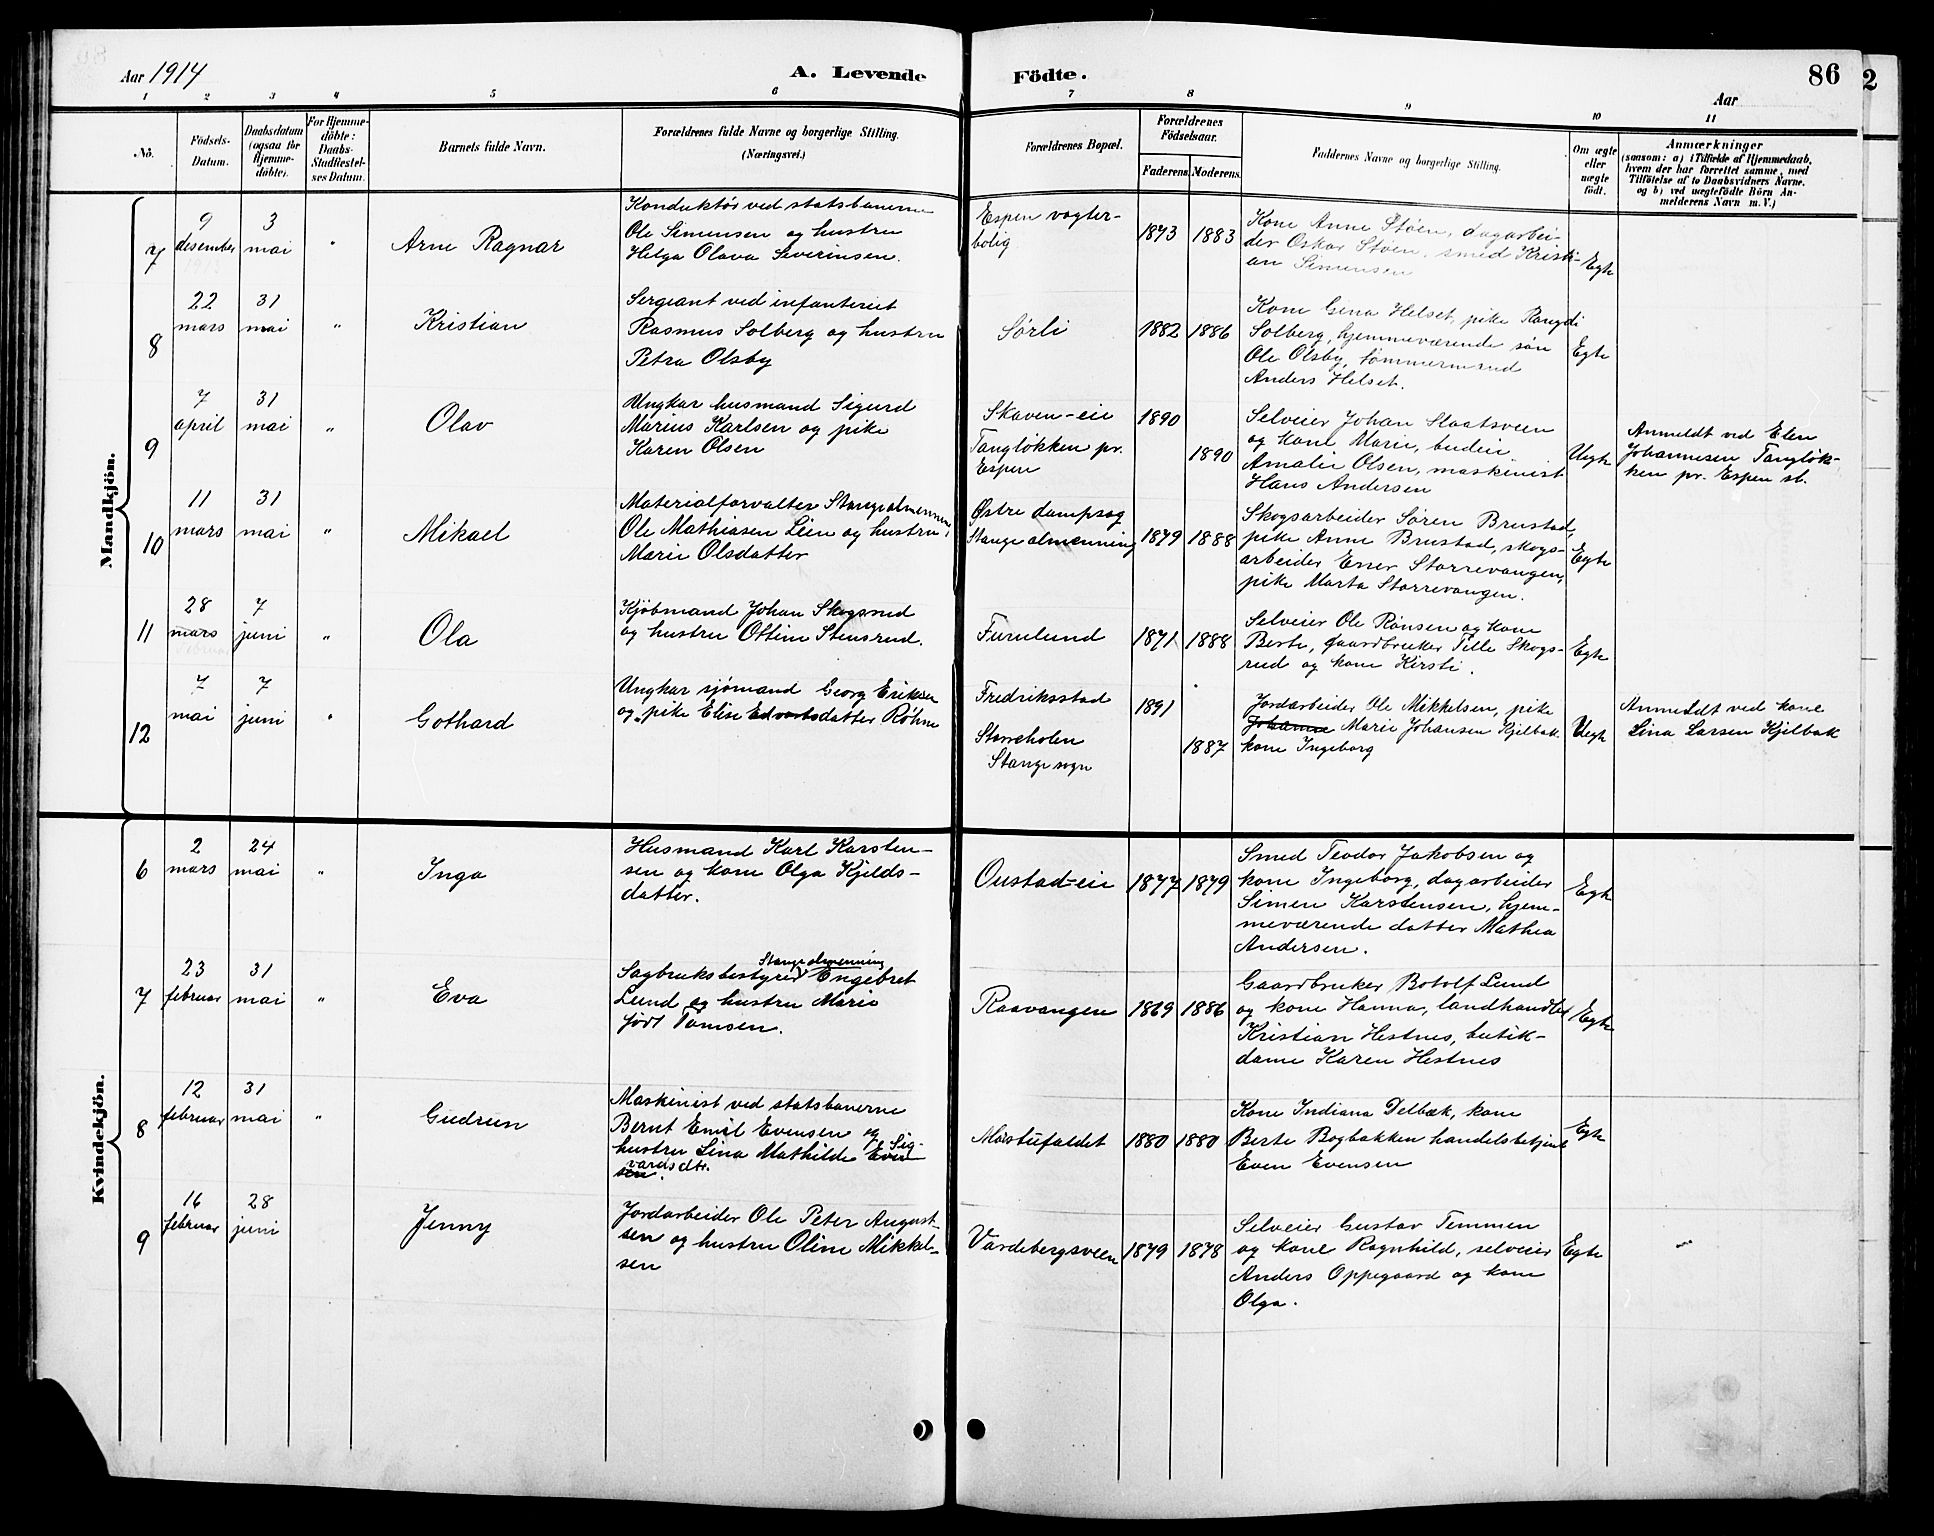 Aar 1914
A. Levende
Födte.
86
Aar
2
1 2 3 4 5 6 7 8 9 10 11
No.
Födsels-
Datum.
Daabsdatum
(ogsaa for
Hjemme-
döbte).
For Hjemme-
döbte:
Daabs-
Stadfæstel-
ses Datum.
Barnets fulde Navn.
Forældrenes fulde Navne og borgerlige Stilling.
(Næringsvei.)
Forældrenes Bopæl.
Forældrenes
Födselsaar.
Faderens. Moderens.
Faddernes Navne og borgerlige Stilling.
Om ægte
eller
uægte
födt.
Anmærkninger
(saasom: a) i Tilfælde af Hjemmedaab,
hvem der har forrettet samme, med
Tilföielse af to Daabsvidners Navne,
og b) ved uægtefödte Börn An-
melderens Navn m. V.)
Mandkjön.
7
9
desember
3
mai
"
Arne Ragnar
Konduktør ved statsbanerne
Ole Simensen og hustru
Helga Olava Severinsen.
Espen vogter-
bolig
1873 1883
Kone Anne Støen, dagarbei-
der Oskar Støen, smed Kristi-
an Simensen
Egte
8
22
mars
31
mai
"
Kristian
Sergeant ved infanteriet
Rasmus Solberg og hustru
Petra Olsby
Sørli
1882 1886
Kone Gina Helset, pike Rangdi
Solberg, hjemmeværende søn
Ole Olsby, tømmermand
Anders Helset.
Egte
9
7
april
31
mai
"
Olav
Ungkar husmand Sigurd
Marius Karlsen og pike
Karen Olsen
Skaven-eie
Tangløkken pr.
Espen
1890
1890
Selveier Johan Staatsveen
og kone Marie, budeie
Amalie Olsen, maskinist
Hans Andersen
Uegte
Anmeldt ved Elen
Johannesen Tangløk-
ken pr. Espen st.
10
11
mars
31
mai
"
Mikael
Materialforvalter Stangealmenning
Ole Mathiasen Lien og hustru
Marie Olsdatter
Østre dampsag
Stange almenning
1879 1888
Skogsarbeider Søren Brustad,
pike Anne Brustad, skogs-
arbeider Ener Storrevangen,
pike Marta Storrevangen.
Egte
11
28
mars
februar
7
juni
"
Ola
Kjøbmand Johan Skogsrud
og hustru Ottine Stensrud.
Furulund
1871 1888
Selveier Ole Rønsen og kone
Berte, Gaardbruker Tille Skogs-
rud og kone Kirsti.
Egte
12
7
mai
7
juni
"
Gothard
Ungkar sjømand Georg Eriksen
og pike Elise Edvartsdatter Røhne
Fredriksstad
Storreholen
Stange sogn
1891
1887
Jordarbeider Ole Mikkelsen, pike
Johanne Marie Johansen Kjelbak.
kone Ingeborg
Uegte
Anmeldt ved kone
Lina Larsen Kjelbak
Kvindekjön.
6
2
mars
24
mai
"
Inga
Husmand Karl Karsten-
sen og kone Olga Kjelds-
datter.
Oustad-eie
1877 1879
Smed Teodor Jakobsen og
kone Ingeborg, dagarbeider
Simen Karstensen, hjem-
meværende datter Mathea
Andersen.
Egte
7
23
februar
31
mai
"
Eva
Stange almenning
Sagbruksbestyrer Engebret
Lund og hustru Marie
født Tomsen.
Raavangen
1869 1886
Gaardbruker Botolf Lund
og kone Hanna, landhandler
Kristian Hestnes, butik-
dame Karen Hestnes
Egte
8
12
februar
31
mai
"
Gudrun
Maskinist ved statsbanerne
Bernt Emil Evensen og
hustru Lina Mathilde Even Sig-
sen. vardsdtr.
Morstufaldet
1880 1880
Kone Indiana Delbæk, kone
Berte Bogbakken handelsbetjent
Even Evensen
Egte
9
16
februar
28
juni
Jenny
Jordarbeider Ole Peter August-
sen og hustru Oline Mikkel-
sen
Vardebergsveen
1879 1878
Selveier Gustav Temmen
og kone Ragnhild, selveier
Anders Oppegaard og kone
Olga.
Egte